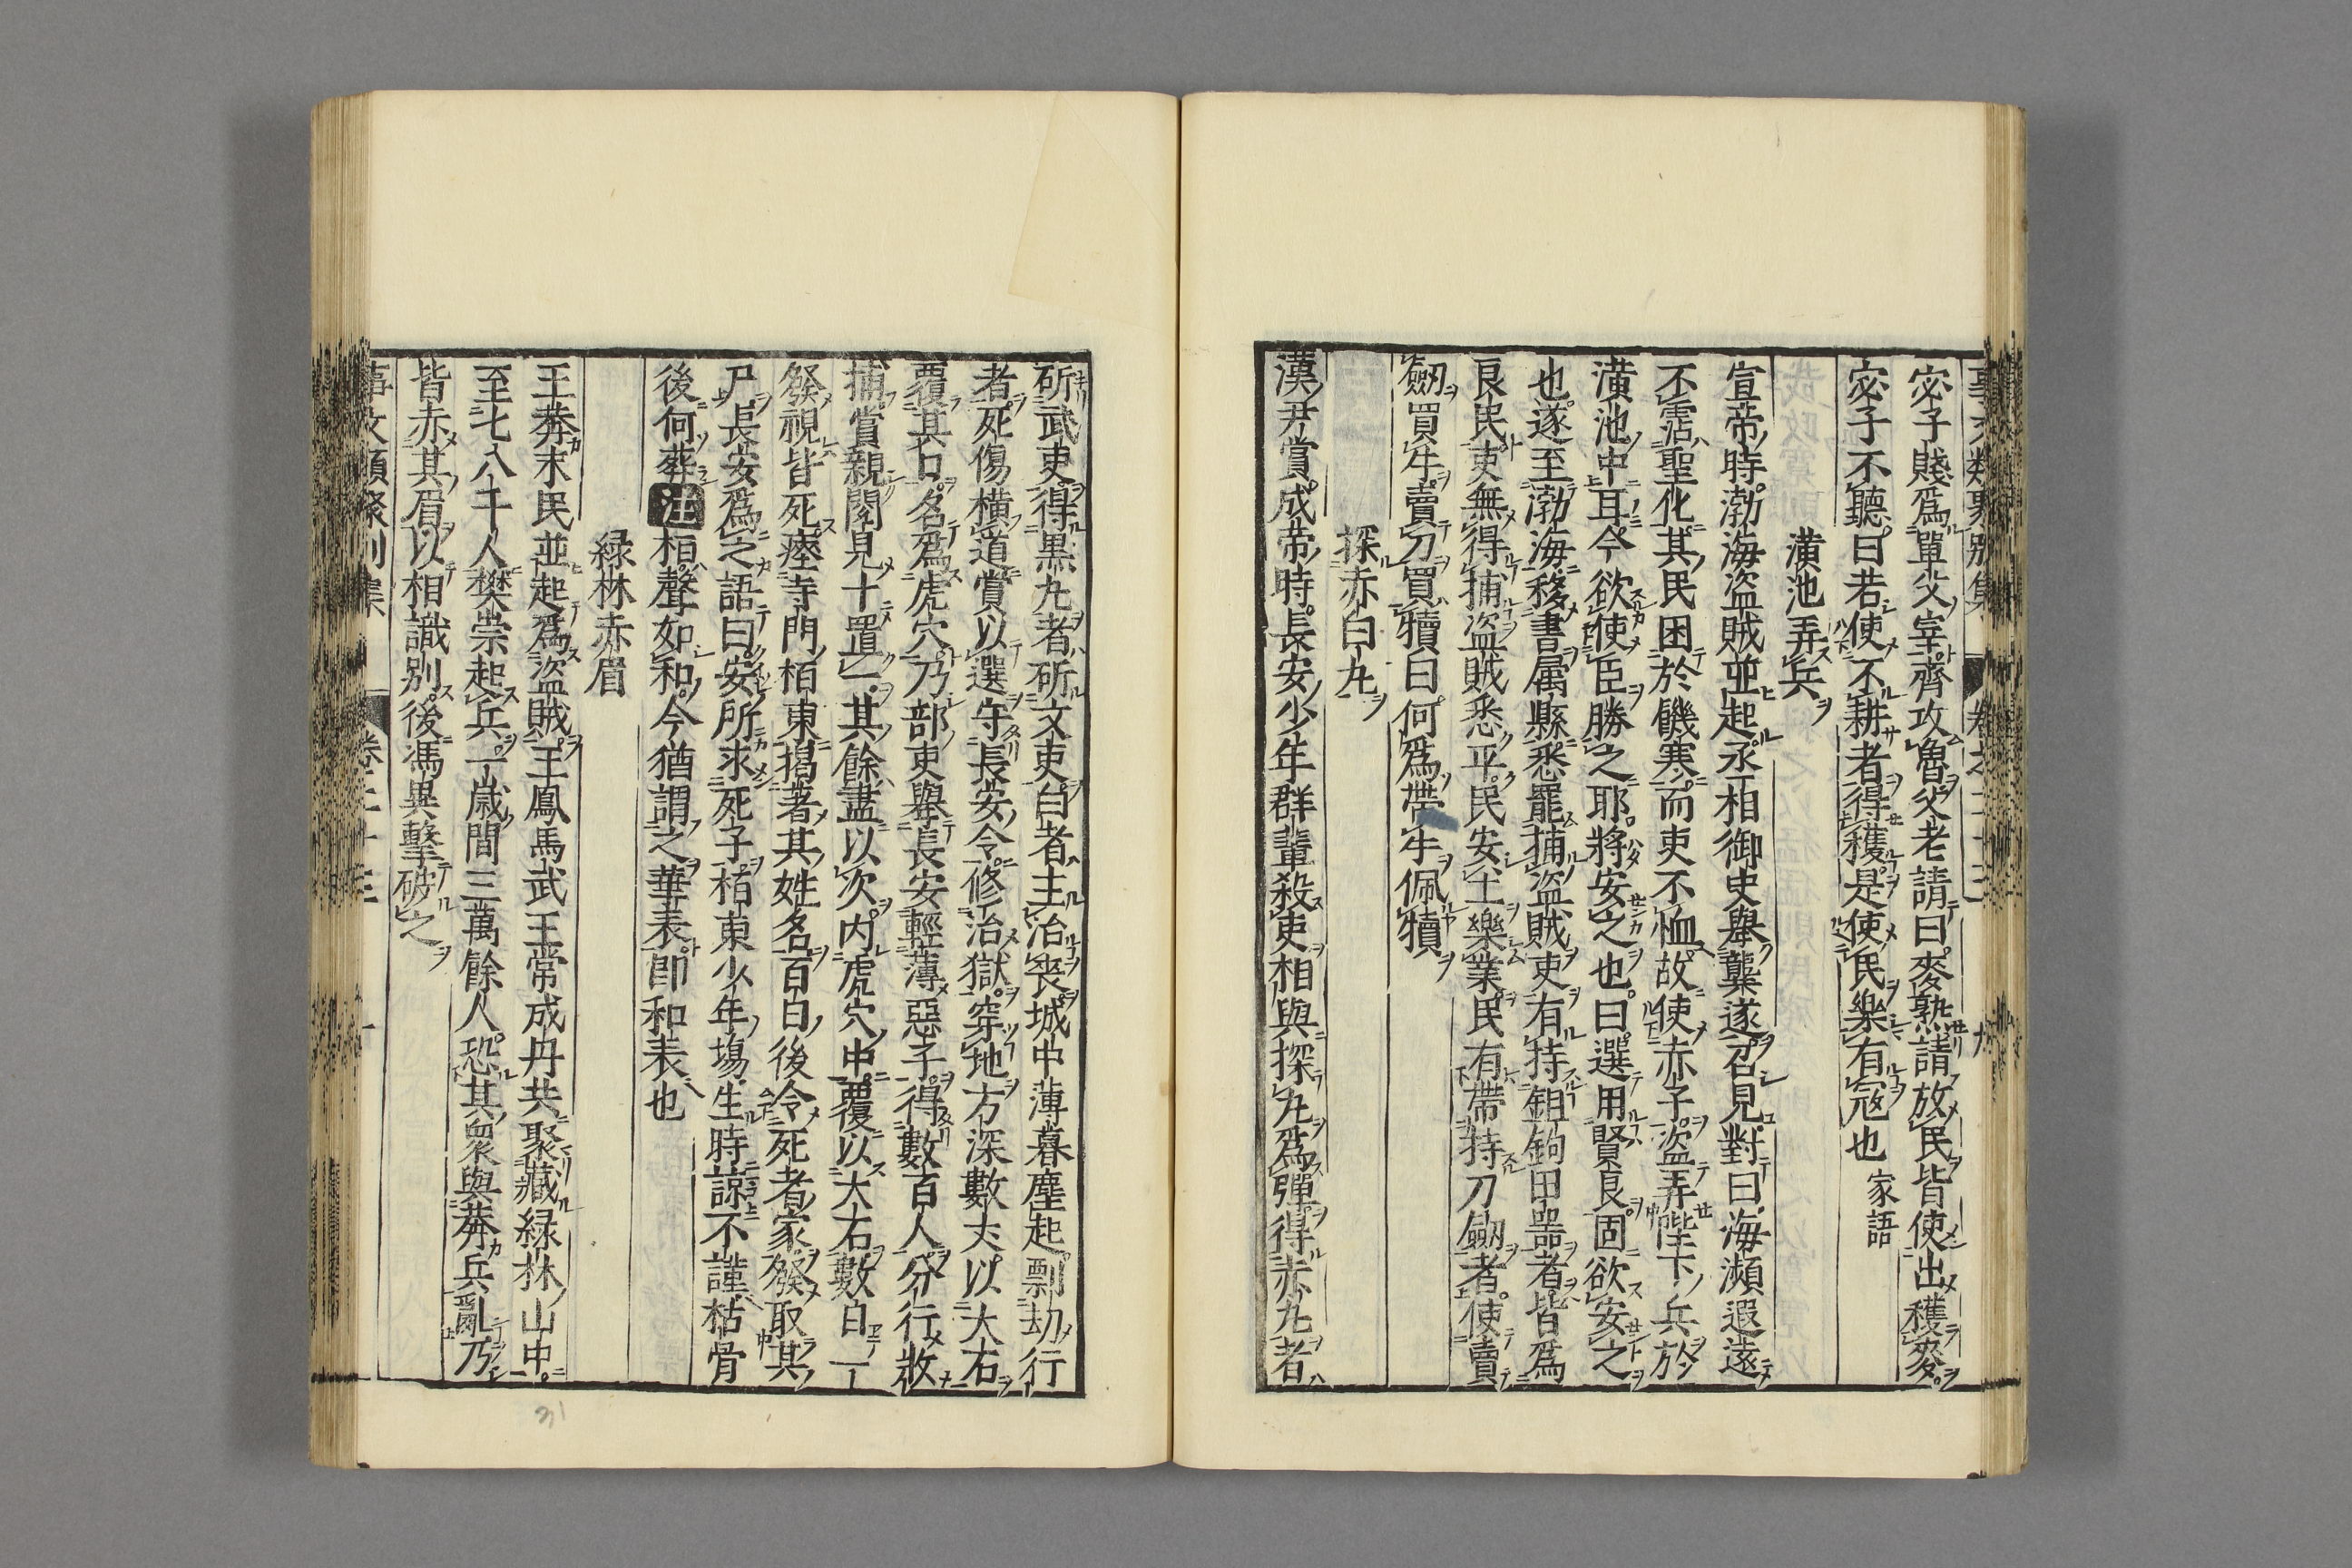 宓子賤爲單父宰齊攻魯父老請曰麥熟請放民皆使出穫麥
宓子不聽曰若使不耕者得穫是使民樂有冦也 家語
潢池弄兵
宣帝時渤海盗賊並起丞相御史舉龔遂召見對曰海瀕遐遠
不霑聖化其民困於饑寒而吏不恤故使赤子盗弄陛下兵於
潢池中耳今欲使臣勝之耶將安之也曰選用賢良固欲安之
也遂至渤海移書属縣悉罷捕盗賊吏有持鉏鉤田噐者皆爲
良民吏無得捕盗賊悉平民安土樂業民有帶持刀劒者使賣
劒買牛賣刀買犢曰何爲帶牛佩犢
探赤白丸
漢尹賞成帝時長安少年群輩殺吏相與探丸爲彈得赤丸者
斫武吏得黒丸者斫文吏白者主治丧城中薄暮塵起剽劫行
者死傷横道賞以選守長安令修治獄穿地方深數丈以大石
覆其口名爲虎穴乃部吏舉長安輕薄惡子得數百人分行收
捕賞親閱見十置一其餘盡以次内虎穴中覆以大石數日一
發視皆死瘞寺門桓東揭著其姓名百日後令死者家發取其
尸長安爲之語曰安所求死子桓東少年塲生時諒不謹枯骨
後何葬注桓聲如和今猶謂之華表即和表也
緑林赤眉
王莽末民並起爲盗賊王鳳馬武王常成丹共聚藏緑林山中
至七八千人樊崇起兵一歳間三萬餘人恐其衆與莽兵亂乃
皆赤其眉以相識别後馮異擊破之